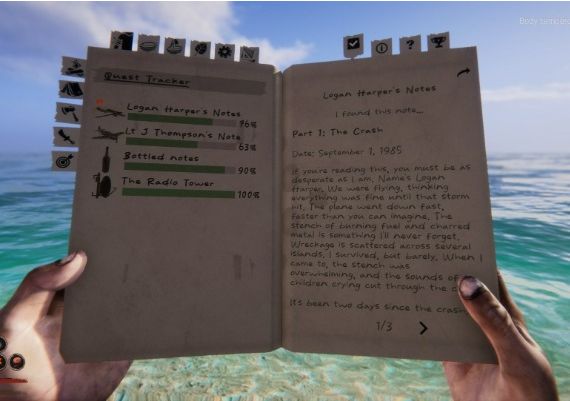 Body temperature
Quest Tracker
Logan Harper's Notes
76%
Lt J Thompson's Note
63%
Bottled notes
90%
The Radio Tower
100%
Logan Harper's Notes
I found this note...
Part 1: The Crash
Date: September 1, 1985
If you're reading this, you must be as
desperate as I am. Name's Logan
Harper. We were flying, thinking
everything was fine until that storm
hit. The plane went down fast,
faster than you can imagine. The
stench of burning fuel and charred
metal is something I'll never forget.
Wreckage is scattered across several
islands. I survived, but barely. When I
came to, the stench was
overwhelming, and the sounds of
children crying cut through the
It's been two days since the crash
1/3